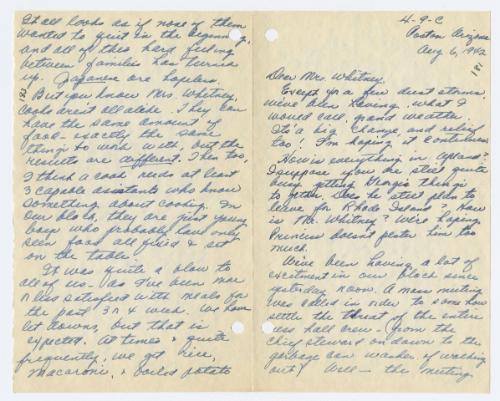 4-9-C
Poston Arizona
Aug 6, 1942
181
Dear Mrs. Whitney,
Except for a few dust storms,
we've been having, what I
would call, grand weather.
It's a big change, and relief
too! I'm hoping it continues.
How is everything in Upland?
I suppose you are still quite
busy getting George's things
together. Does he still plan to
leave for Rhode Island? How
is Mr. Whitney? We're hoping
doesn't pester him too
much.
We've been having a lot of
excitment in our block since
yesterday noon. A mass meeting
was called in order to some how
settle the threat of the entire
mess hall crew - from the
chief steward on down to the
garbage can washer of walking
out! Well - the meeting
It all looks as if none of them
wanted to quit in the beginning,
and all of this hard feeling
between families has turned
up. Japanese are hopeless.
But you know Mrs. Whitney,
cooks aren't all alike. They can
have the same amount of
food - exactly the same
things to work with, but the
results are different. Then too,
I think a cook needs at least
3 capable assistants who know
something about cooking. In
our block, they are just young
boys who probably have only
seen food all fixed & set
on the table.
It was quite a blow to
all of us - as I've been more
n less satisfied with meals for
the past 3 n 4 week. We have
let downs, but that is
expected. At times & quite
frequently, we get rice,
macaroni, & boiled potato